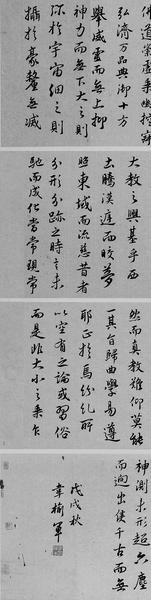 佛道崇虛乘幽控寂
弘濟万品典御十方
舉威靈而無上抑
神力而無下大之則
弥於宇宙細之則
攝於豪釐無滅
大教之興基乎西
土騰漢庭而皎夢
照東域而流慈昔者
分形分跡之時言未
馳而成化當常現常
然而真教難仰莫能
一其旨歸曲學易遵
耶正於焉紛糺所
以空有之論或習俗
而是非大小之乘乍
神測未形超六塵
而迥出使千古而無
戊戌秋